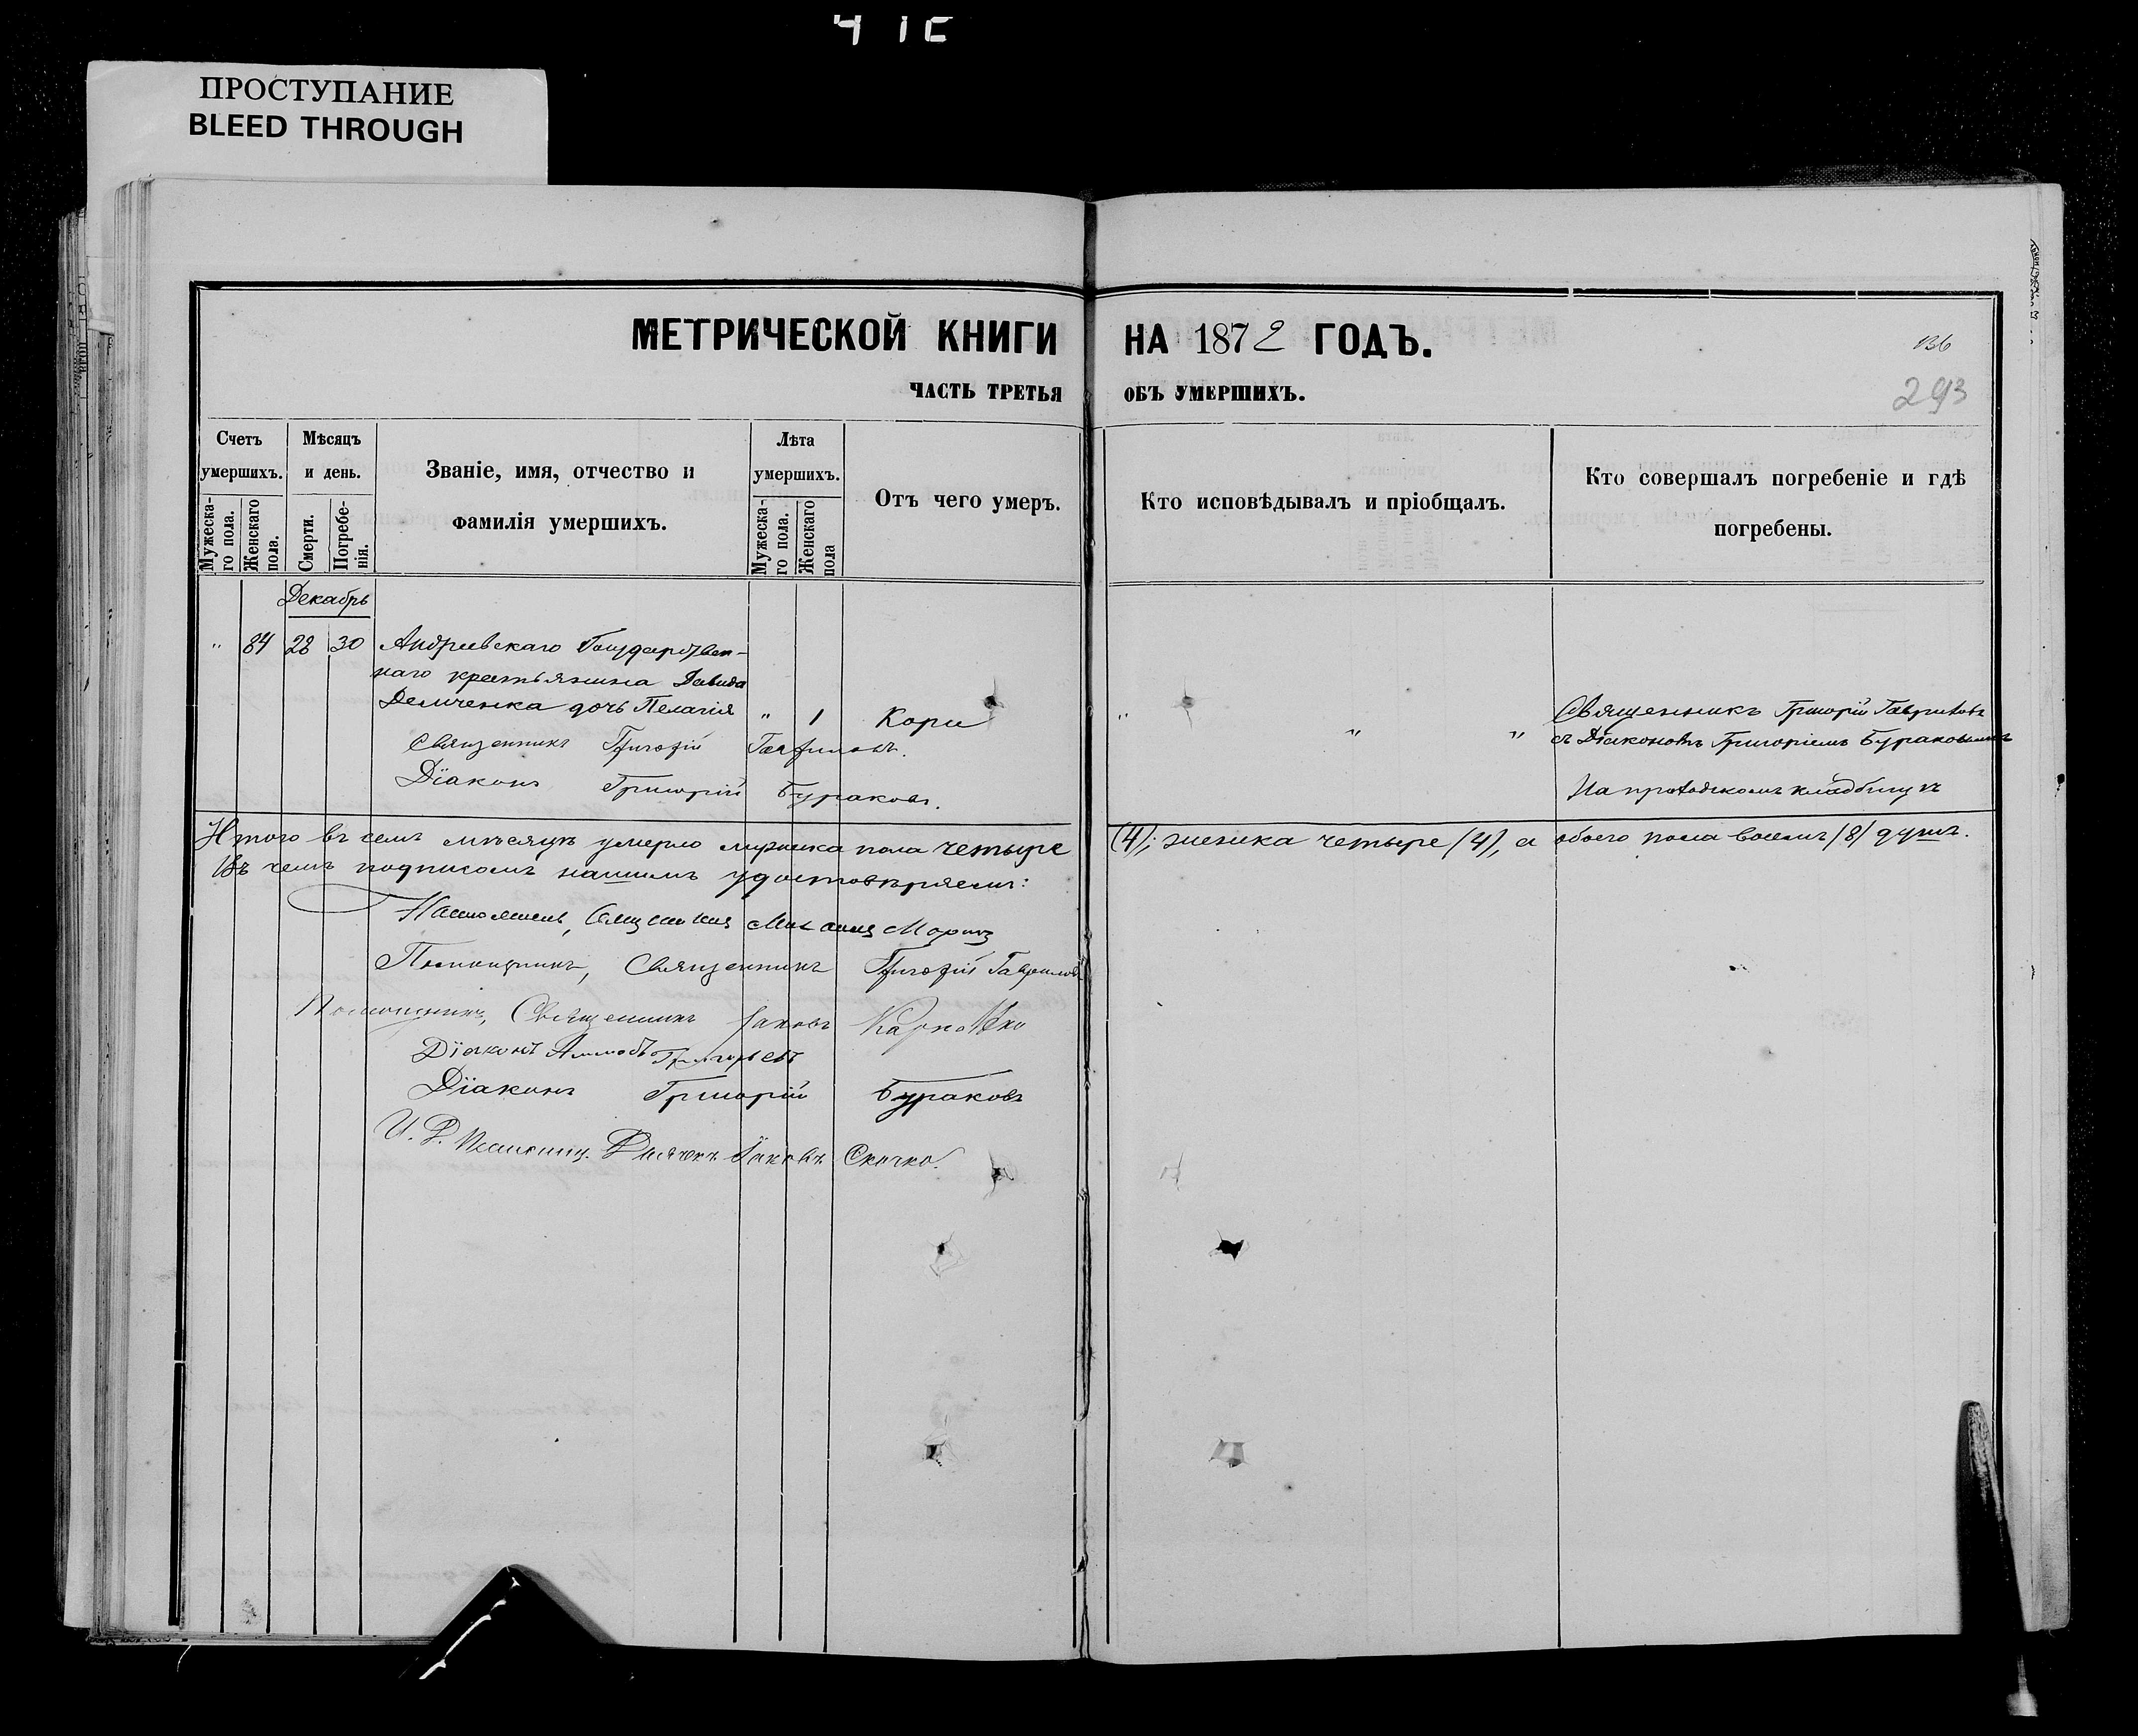 ПРОСТУПАНИЕ
BLEED THROUGH
МЕТРИЧЕСКОЙ КНИГИ НА 1872 ГОДЪ.
136
ЧАСТЬ ТРЕТЬЯ ОБЪ УМЕРШИХЪ.
293
Счетъ умершихъ.
Мужеска-го пола.
Женскаго пола.
Мѣсяцъ и день.
Смерти.
Погребе-нія.
Званіе, имя, отчество и
фамилія умершихъ.
Лѣта умершихъ.
Мужеска-го пола.
Женскаго пола
Отъ чего умеръ.
Кто исповѣдывалъ и пріобщалъ.
Кто совершалъ погребеніе и гдѣ
погребены.
Декабрь
" 84 28 30 Андреевскаго Государствен-
наго крестьянина Давида
дочь Пелагія " 1 Кори "
Священникъ Григорій Гавриловъ
съ Діакономъ Григоріемъ Бураковымъ
Священникъ Григорій Гавриловъ. " "
Діаконъ Григорій Бураковъ.
На приходскомъ кладбищѣ
Итого въ семъ мѣсяцѣ умерло мужеска пола четыре (4); женска четыре (4), а обоего пола восемь (8) душъ.
Въ чемъ подписомъ нашимъ удостовѣряемъ:
Священникъ
Помощникъ, Священникъ Григорій Гавриловъ
Помощникъ, Священникъ Іаковъ
Діаконъ Григорьевъ
Діаконъ Григорій Бураковъ
И. Д. Псаломщ. Дьячекъ Іаковъ Скочко.